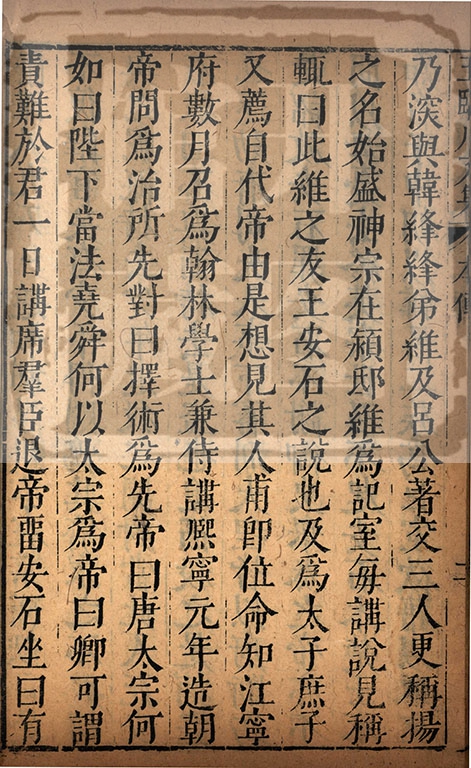 乃深與韓絳絳弟維及呂公著交三人更稱揚
之名始盛神宗在潁邸維爲記室每講說見稱
輒曰此維之友王安石之說也及爲太子庶子
又薦自代帝由是想見其人甫卽位命知江寧
府數月召爲翰林學士兼侍講熙寧元年造朝
帝問爲治所先對曰擇術爲先帝曰唐太宗何
如曰陛下當法堯舜何以太宗爲帝曰卿可謂
責難於君一日講席羣臣退帝畱安石坐曰有